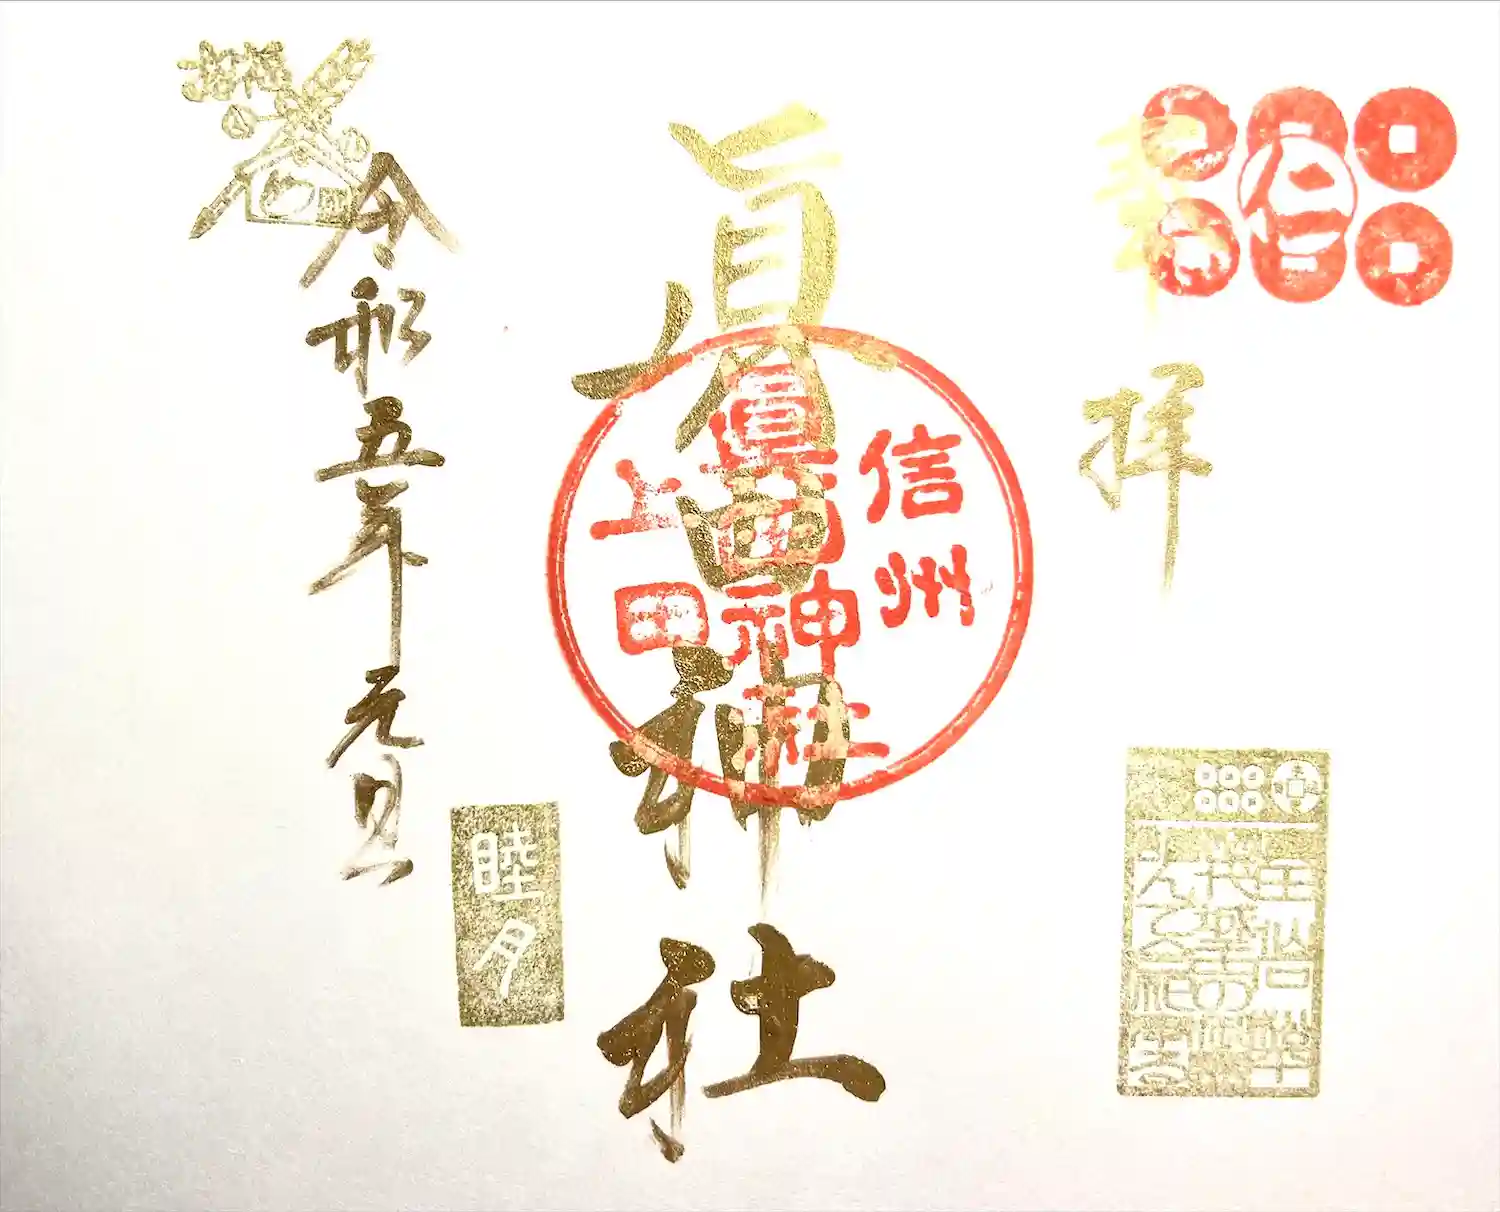 奉拝
仁
眞田神社
信州
眞田神社
上田
睦月
令和五年元旦